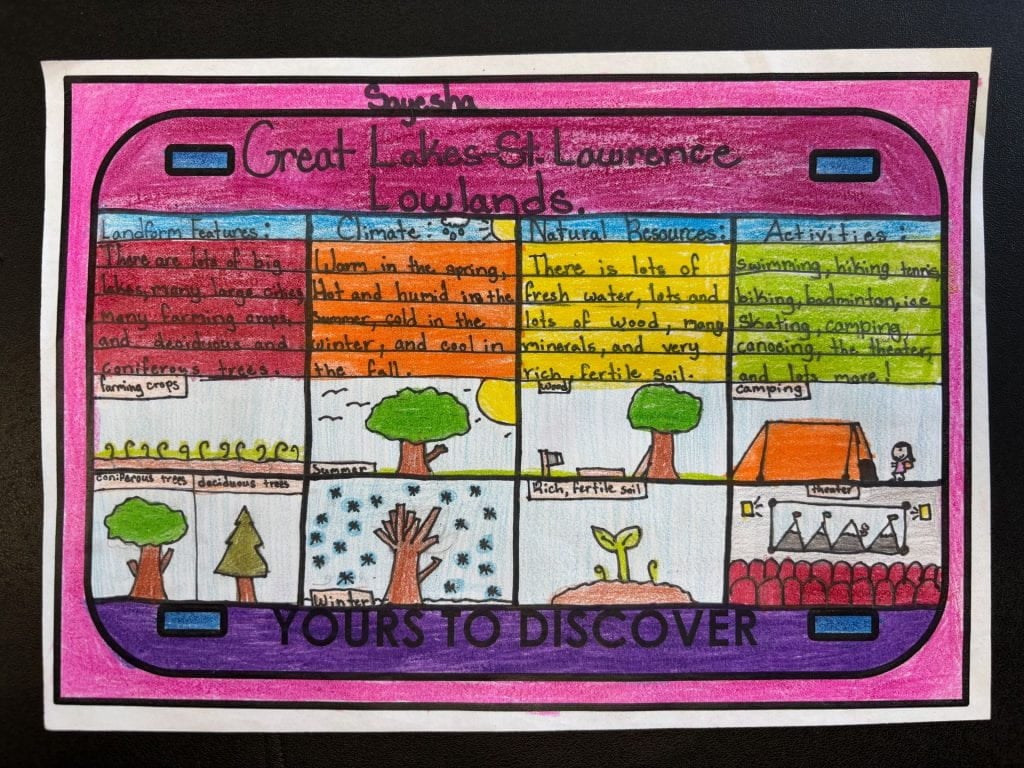 Sayesha
Great Lakes-St. Lawrence
Lowlands.
Landform Features:
There are lots of big
lakes, many large cities,
many farming crops,
and deciduous and
coniferous trees.
farming crops
coniferous trees
deciduous trees
Climate:
Warm in the spring,
Hot and humid in the
summer, cold in the
winter, and cool in
the fall.
Summer
Winter
Natural Resources:
There is lots of
fresh water, lots and
lots of wood, many
minerals, and very
rich, fertile soil.
wood
Rich, fertile soil
Activities:
swimming, hiking, tennis,
biking, badminton, ice
skating, camping
canoeing, the theater,
and lots more!
camping
theater
YOURS TO DISCOVER